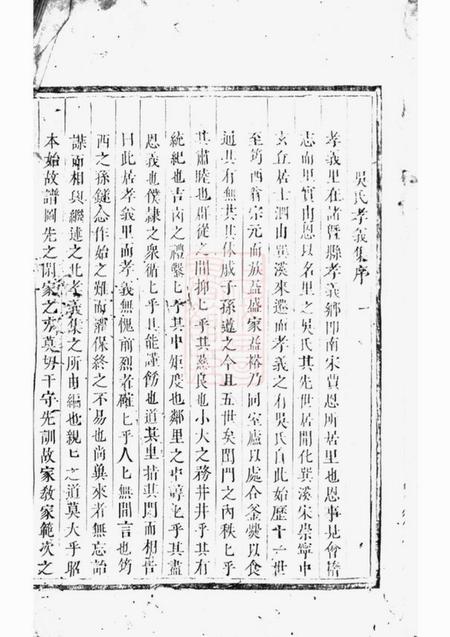 吳氏孝義集序
孝義里在諸暨縣孝義鄉即南宋賈恩所居里也恩事見會稽
志而里實由恩以名里之吳氏其先世居開化巽溪宋崇寧中
玄真居士泗由巽溪來遷而孝義之有吳氏自此始歷十一世
至筠西當宗元而族益盛家益裕乃同室廬以處合釜爨以食
通其有無共其休戚子孫遵之今且五世矣閨門之內秩乜乎
其肅睦也群從之間抑乜乎其燕良也小大之務井井乎其有
統紀也吉凶之禮繫乜乎其中矩度也鄰里之中諄乜乎其盡
恩義也僕隸之衆循乜乎其能謹飭也道其里指其門而相告
曰此居孝義里而孝義無愧前烈者確乜乎人乜無間言也筠
西之孫鏈念作始之難而濯保終之不易也尚冀來者無忘詒
謀而相與繼述之此孝義集之所由編也親乜之道莫大乎昭
本始故譜圖先之閑家之方莫切于守先訓故家敎家範次之